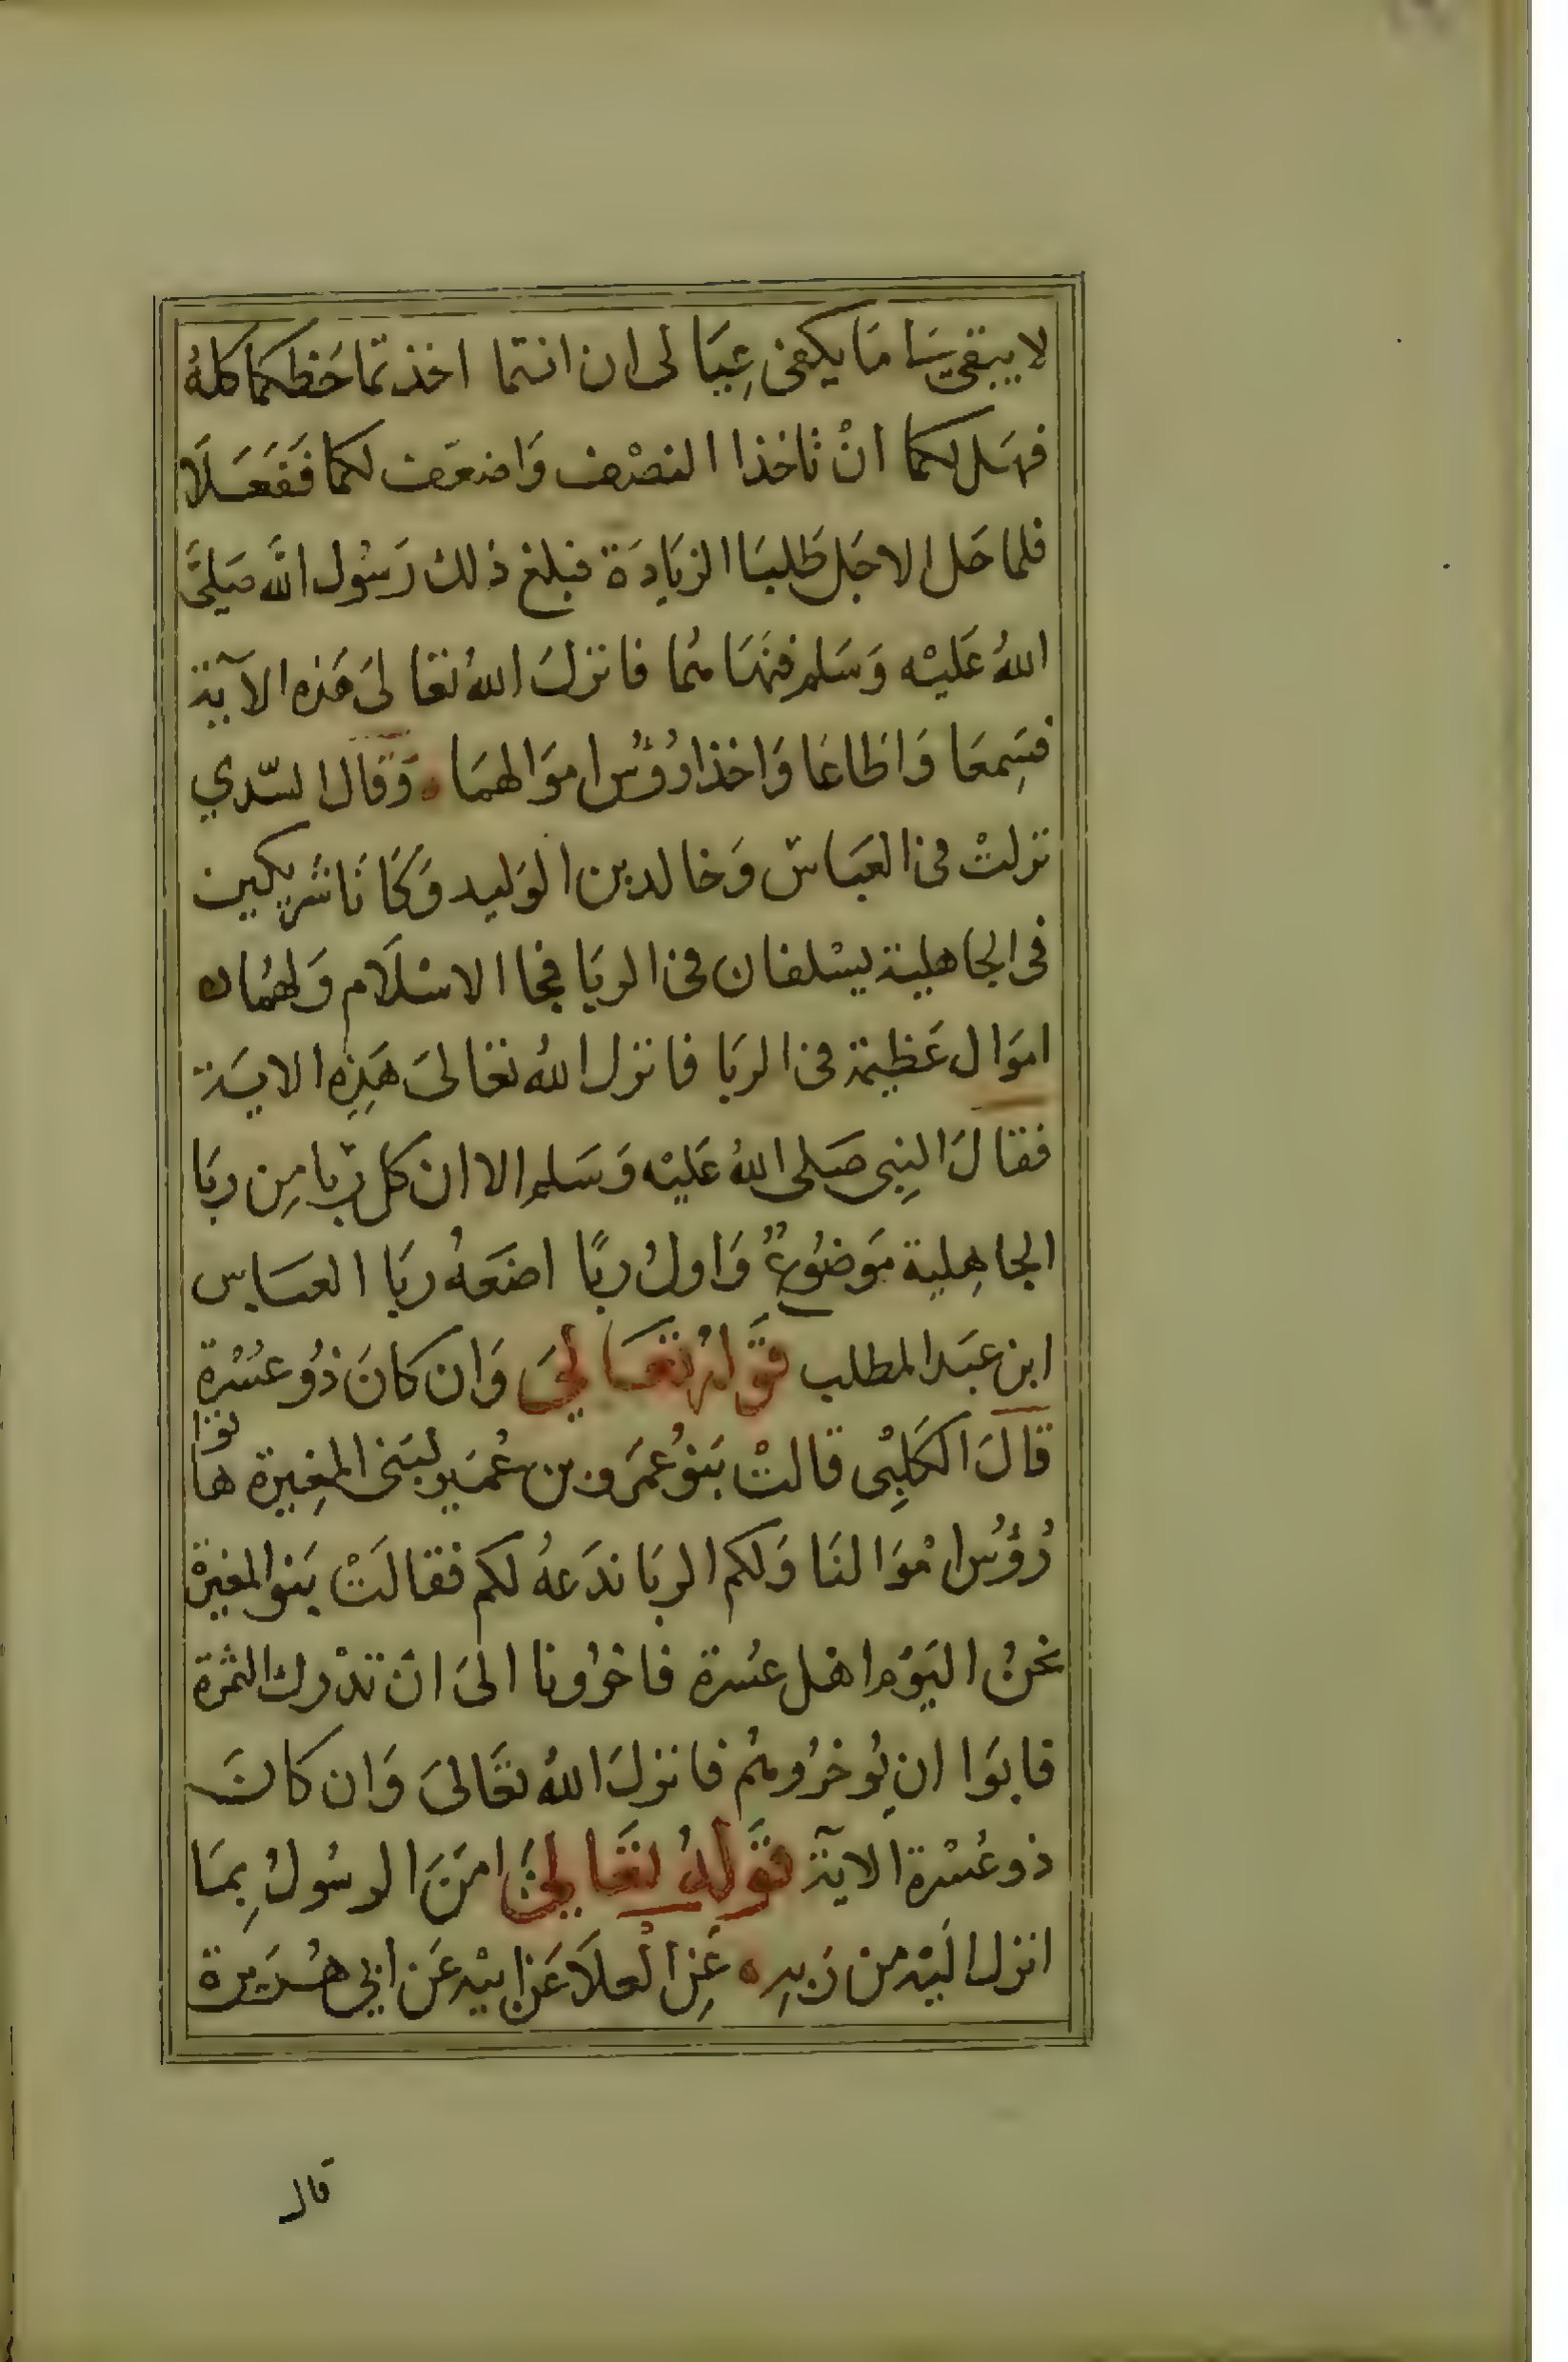 لا يبقى سا مَا يكفى عِيَا لى ان انتما اخذتما حَظكما كلهُ
فهَل لكما انْ تاخذا النصْف وَاضعَف لكما فَفَعَلَا
فلما حَل الاجَل طَلبَا الزيَادَة فبلغ ذلك رَسُول الله صَلىَّ
اللهُ عَليْه وَسَلم فنهَاهُما فانزلَ اللهُ تعَالىَ هَذه الآية
فسَمِعَا وَاطَاعَا وَاخذا رُؤُس اموَالهمَا ٥ وَقَال السّدي
نزلتْ فى العَبَاس وَخالد بن الوَليد وَكَانَا شَريكين
فى الجاهلية يسْلفان فى الربَا فجا الاسْلَام وَلهُمَا
اموَال عَظيمَة فى الربَا فانزل اللهُ تعَالىَ هَذِه الايَة
فقالَ النبِى صَلى اللهُ عَليْه وَسَلم الا ان كل ربا مِن ربَا
الجاهِلية مَوضُوعٌ وَاولُ ربًا اضعَهُ ربَا العبَاس
ابن عبَد المطلب قَولهُ تعَالىَ وَان كانَ ذوُ عسُرْة
قالَ الكَلِبْى قالتْ بَنوُ عمَرو بن عُمَير لبَنى المغِيرة هاتوا
رُؤُس امْوَالنَا وَلكم الربَا ندَعهُ لكم فقالَتْ بَنوا المغيرْة
نحنُ اليَوْم اهَل عسُرة فاخرُونا الىَ انْ تدْرك الثمرَة
فابَوا ان يُوخرُوهُم فانزلَ اللهُ تعَالىَ وَان كانَ
ذو عُسْرة الآية قَولهُ تعَالىَ امَنَ الرسُولُ بِمَا
انزل اليْه من رَبهِ ٥ عَنِ العلَا عَن ابيْه عَن ابى هُرَيرة
قال